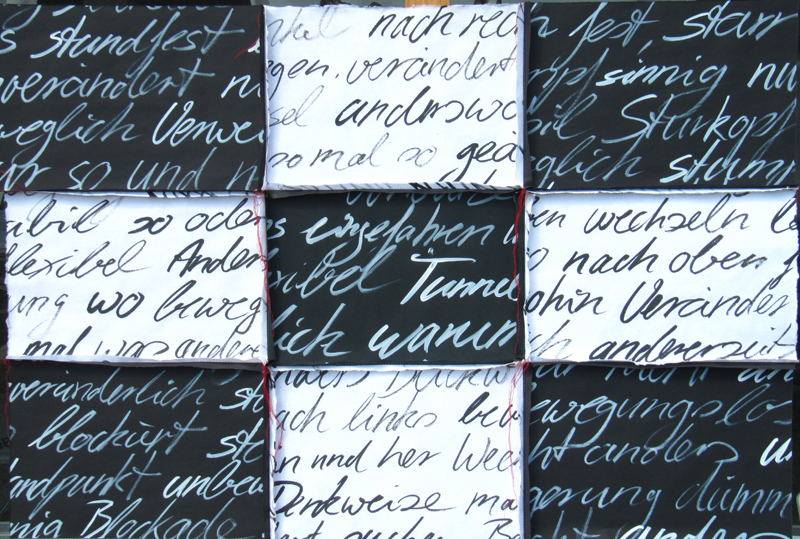 standfest
verändert
weglich Verwei
so und
nach rech
gen, verändert
anderswo
so mal so geä
fest, starr
sinnig nu
Sturkopf
glich stumm
abil so oder
flexibel Anders
ung wo beweg
mal was andere
s eingefahren
xibel Tunnel
lick warum
en wechseln
o nach oben,
ohin Veränder
ich andererseits
veränderlich st
blockiert st
andpunkt unbew
nig Blockade
anders Blickw
ach links bew
in und her Wech
Denkweise ma
ewegungslos
ht anders u
gerung dumm